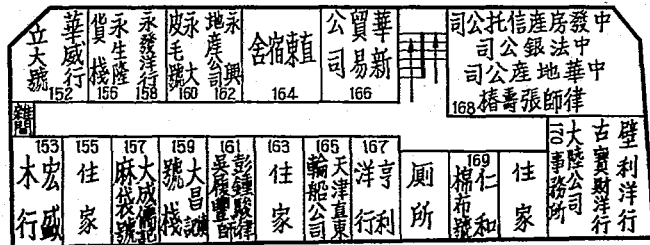 華威行
立大號
152
永生隆
貨棧
156
永發洋行
158
永大
皮毛號
160
永興
地產公司
162
直東宿舍
164
華新
貿易
公司
166
中發房產信托公司
中法銀公司
中華地產公司
律師張壽椿
168
153
宏盛
木行
155
住家
157
大成
麻袋衣號
159
大昌
號棧
161
彭鍾駿律師
163
住家
165
天津直東
輪船公司
167
亨利
洋行
厠所
169
仁和
棉布號
住家
170
大陸公司
事務所
古寶財洋行
壁利洋行